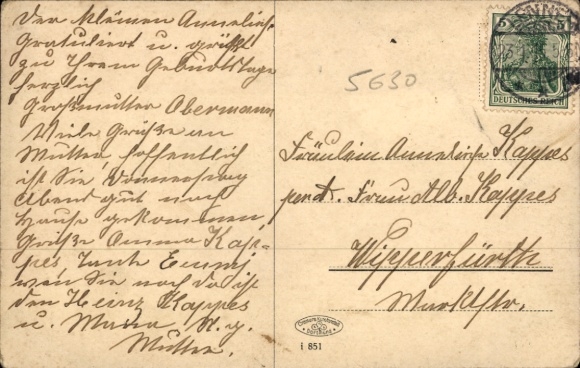 Der kleinen Anneliese
gratuliert u. grüßt
zu Ihrem Geburtstage
herzlich
Großmutter Obermann
Viele Grüße an
Mutter, hoffentlich
ist Sie Donnerstag
abend gut nach
Hause gekommen
Grüße Anna Kap-
pes Tante Emmi
wen Sie noch da ist
den Heinz Kappes
u. Mutter.
5630
5
DEUTSCHES REICH
Fräulein Anneliese Kappes
per Adr. Frau Alb. Kappes
Wipperfürth
Marktstr.
i 851